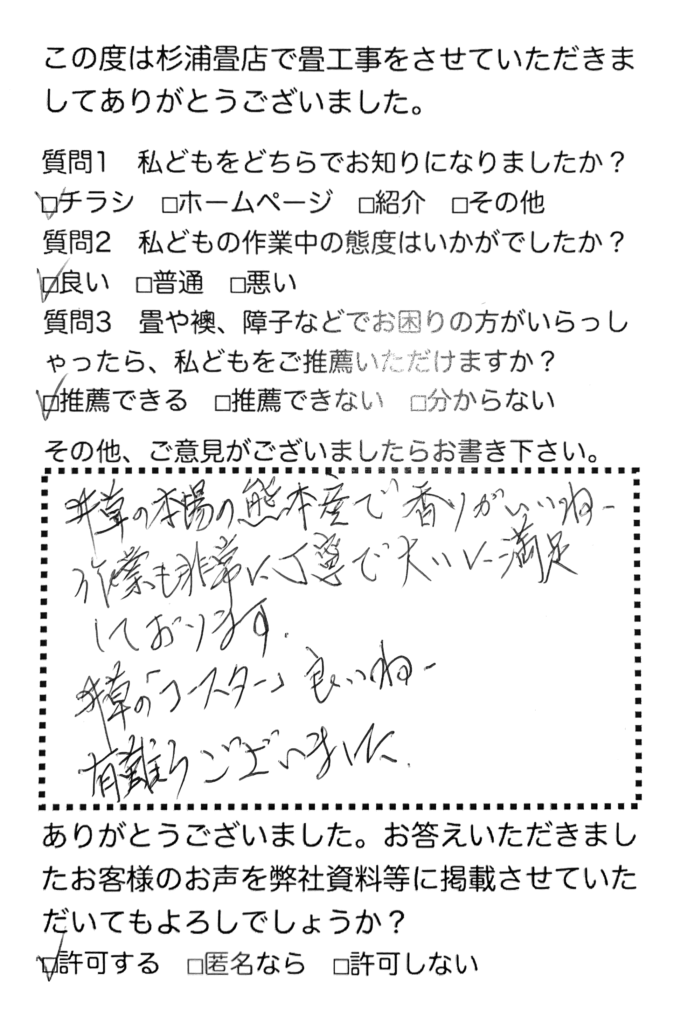 この度は杉浦畳店で畳工事をさせていただきま
してありがとうございました。
質問1　私どもをどちらでお知りになりましたか？
☑チラシ　□ホームページ　□紹介　□その他
質問2　私どもの作業中の態度はいかがでしたか？
☑良い　□普通　□悪い
質問3　畳や襖、障子などでお困りの方がいらっし
ゃったら、私どもをご推薦いただけますか？
☑推薦できる　□推薦できない　□分からない
その他、ご意見がございましたらお書き下さい。
井草の本場の熊本産で香りがいいねー
作業も非常に丁寧で大いに満足
しております.
井草の「コースター」良いねー
有難うございました.
ありがとうございました。お答えいただきまし
たお客様のお声を弊社資料等に掲載させていた
だいてもよろしでしょうか？
☑許可する　□匿名なら　□許可しない